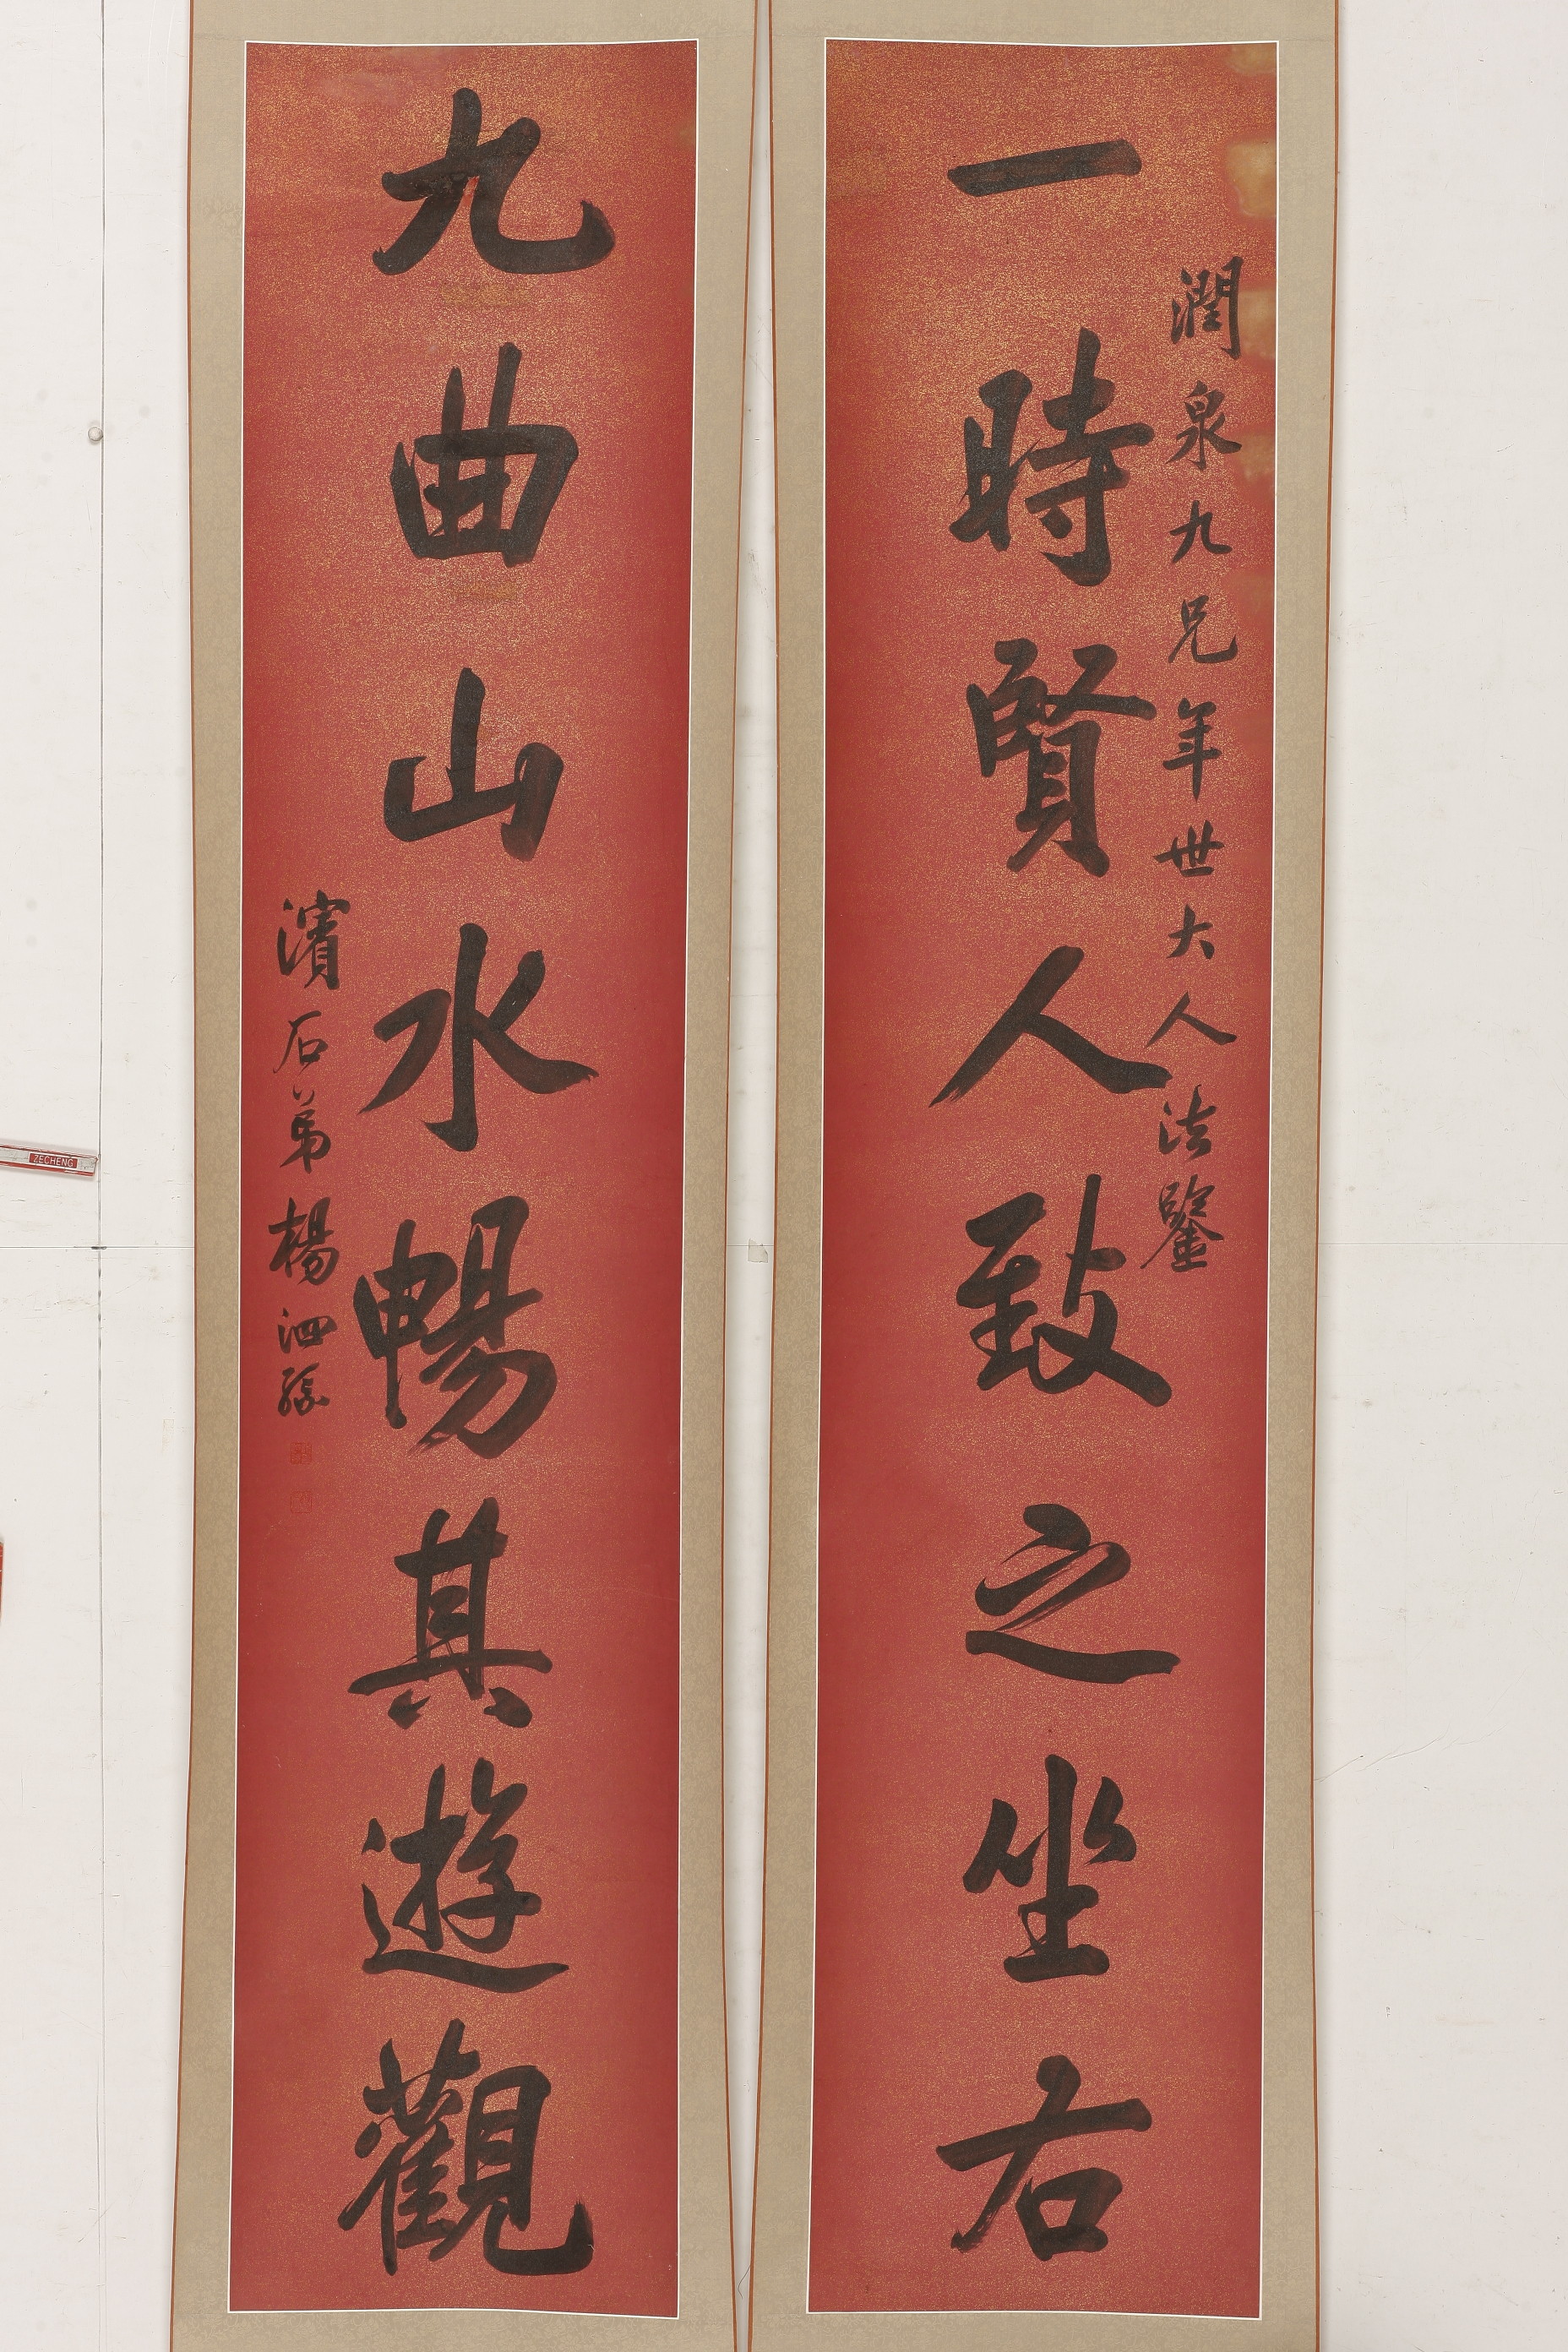 潤泉九兄年世大人法鑒
一時賢人致之坐右
九曲山水暢其遊觀
濱石弟楊泗孫
ZECHENG